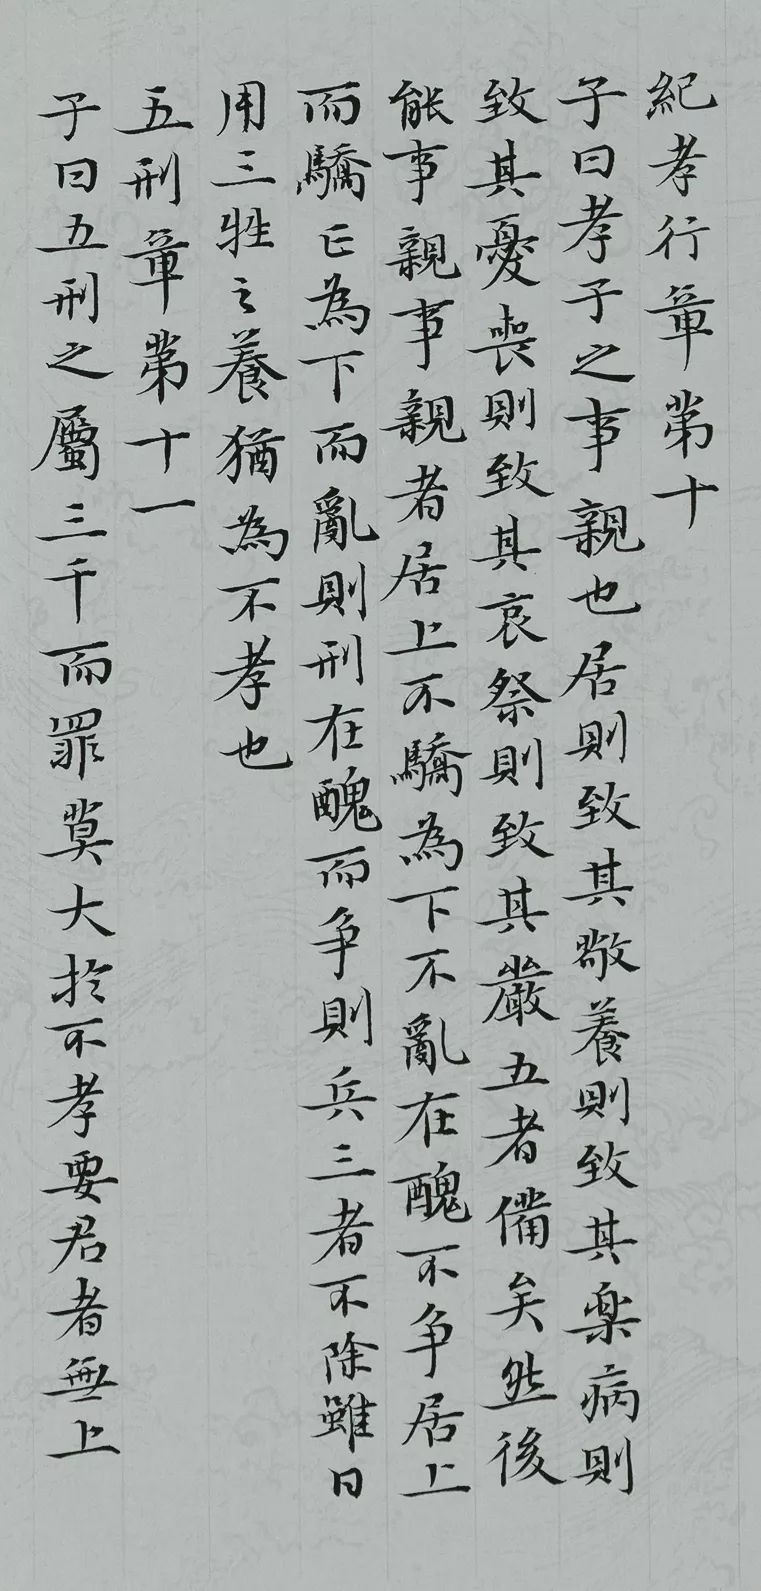 紀孝行章第十
子曰孝子之事親也居則致其敬養則致其樂病則
致其憂喪則致其哀祭則致其嚴五者備矣然後
能事親事親者居上不驕為下不亂在醜不争居上
而驕亡為下而亂則刑在醜而争則兵三者不除雖日
用三牲之養猶為不孝也
五刑章第十一
子曰五刑之屬三千而罪莫大於不孝要君者無上